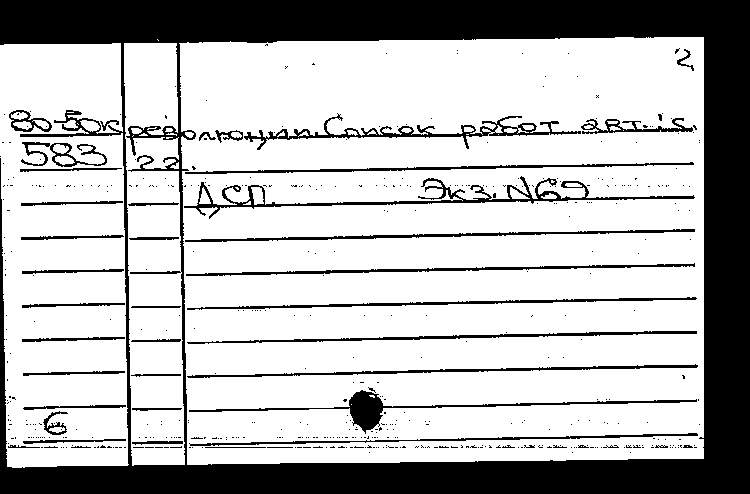 2
80-50к революции. Список работ авт.: с.
583 22.
ДСП. Экз. N69
є